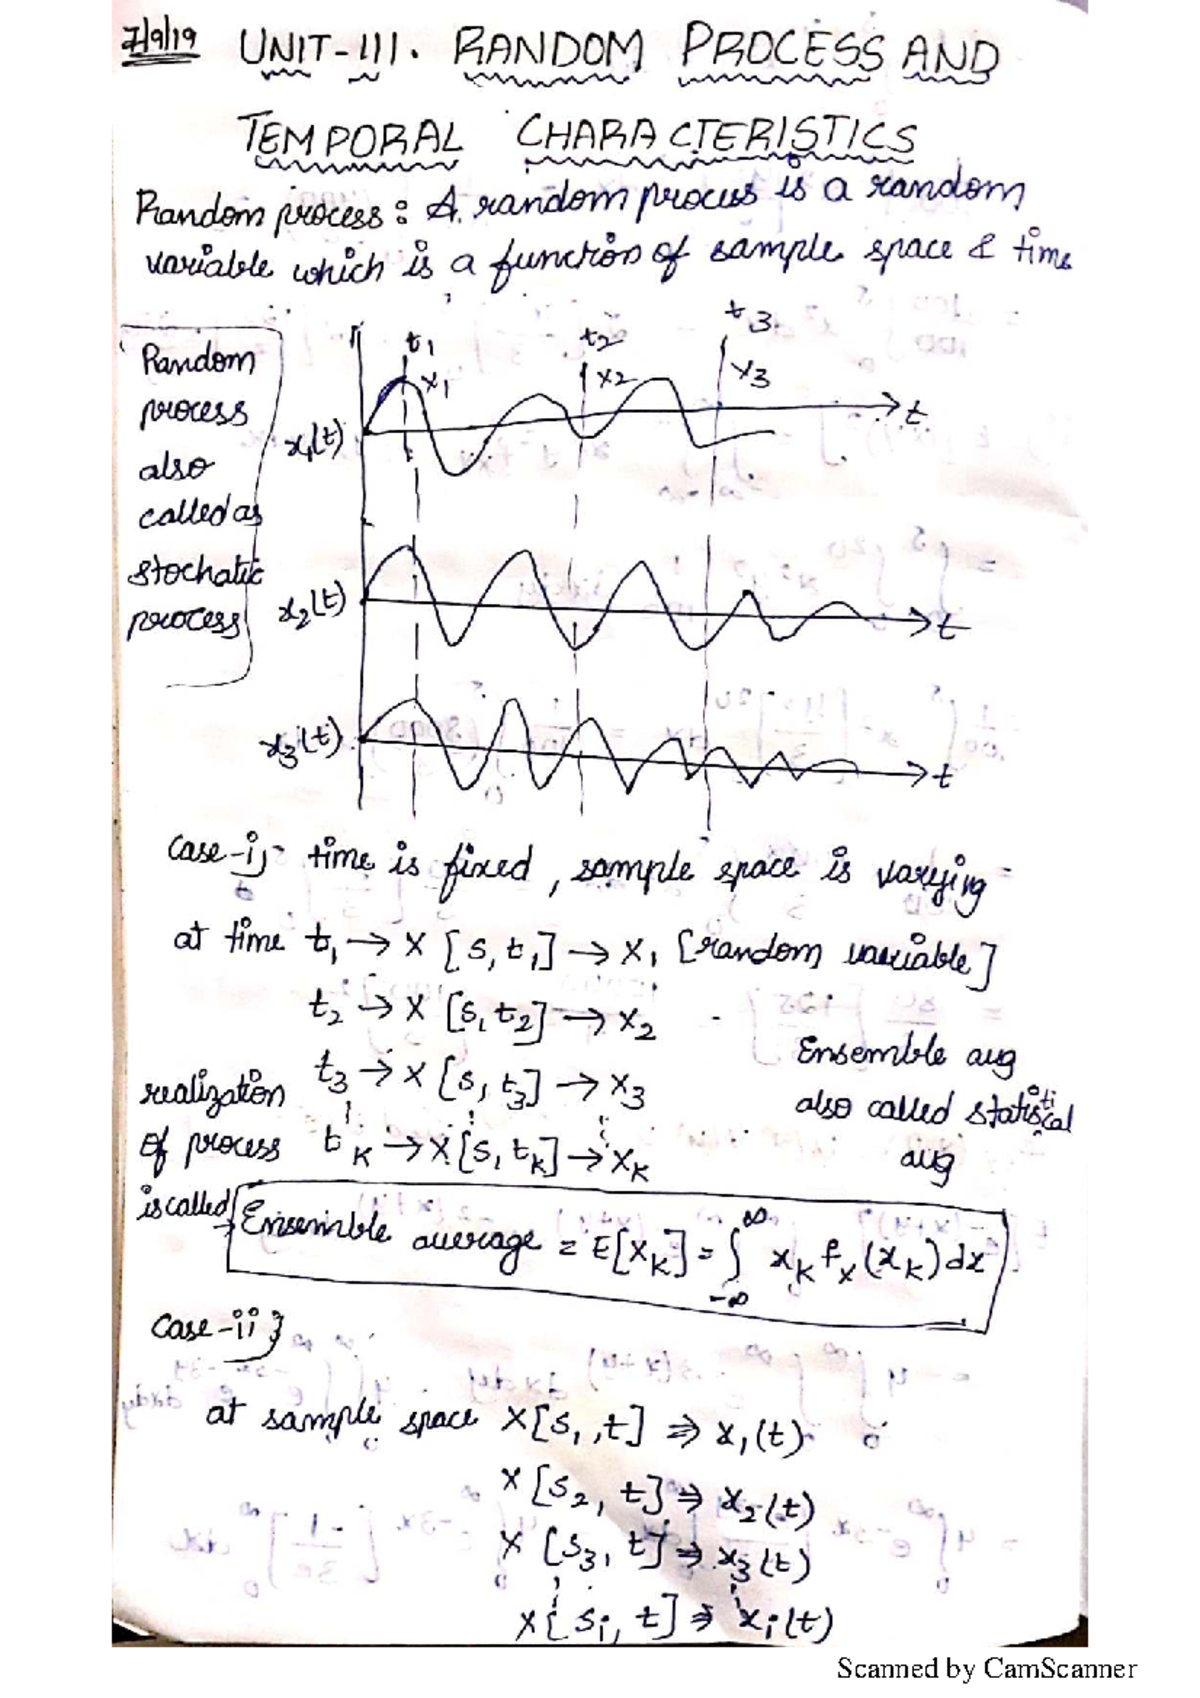 7/9/19 UNIT-III. RANDOM PROCESS AND
TEMPORAL CHARACTERISTICS
Random process : A random process is a random
variable which is a function of sample space & time
Random
process
also
called as
stochatic
process
t1 t2 t3
x1 x2 x3
x1(t) t
x2(t) t
x3(t) t
case-i) time is fixed, sample space is varying
at time t1 → X [s, t1] → X1 [random variable]
t2 → X [s, t2] → X2
t3 → X [s, t3] → X3
tK → X [s, tK] → XK
realization
of process
is called
Ensemble avg
also called statistical
avg
Ensemble average = E[XK] = ∫ -∞ ∞ xK fx (xK) dx
case-ii}
at sample space X[s1, t] ⇒ x1(t)
X [s2, t] ⇒ x2(t)
X [s3, t] ⇒ x3(t)
X [si, t] ⇒ xi(t)
Scanned by CamScanner